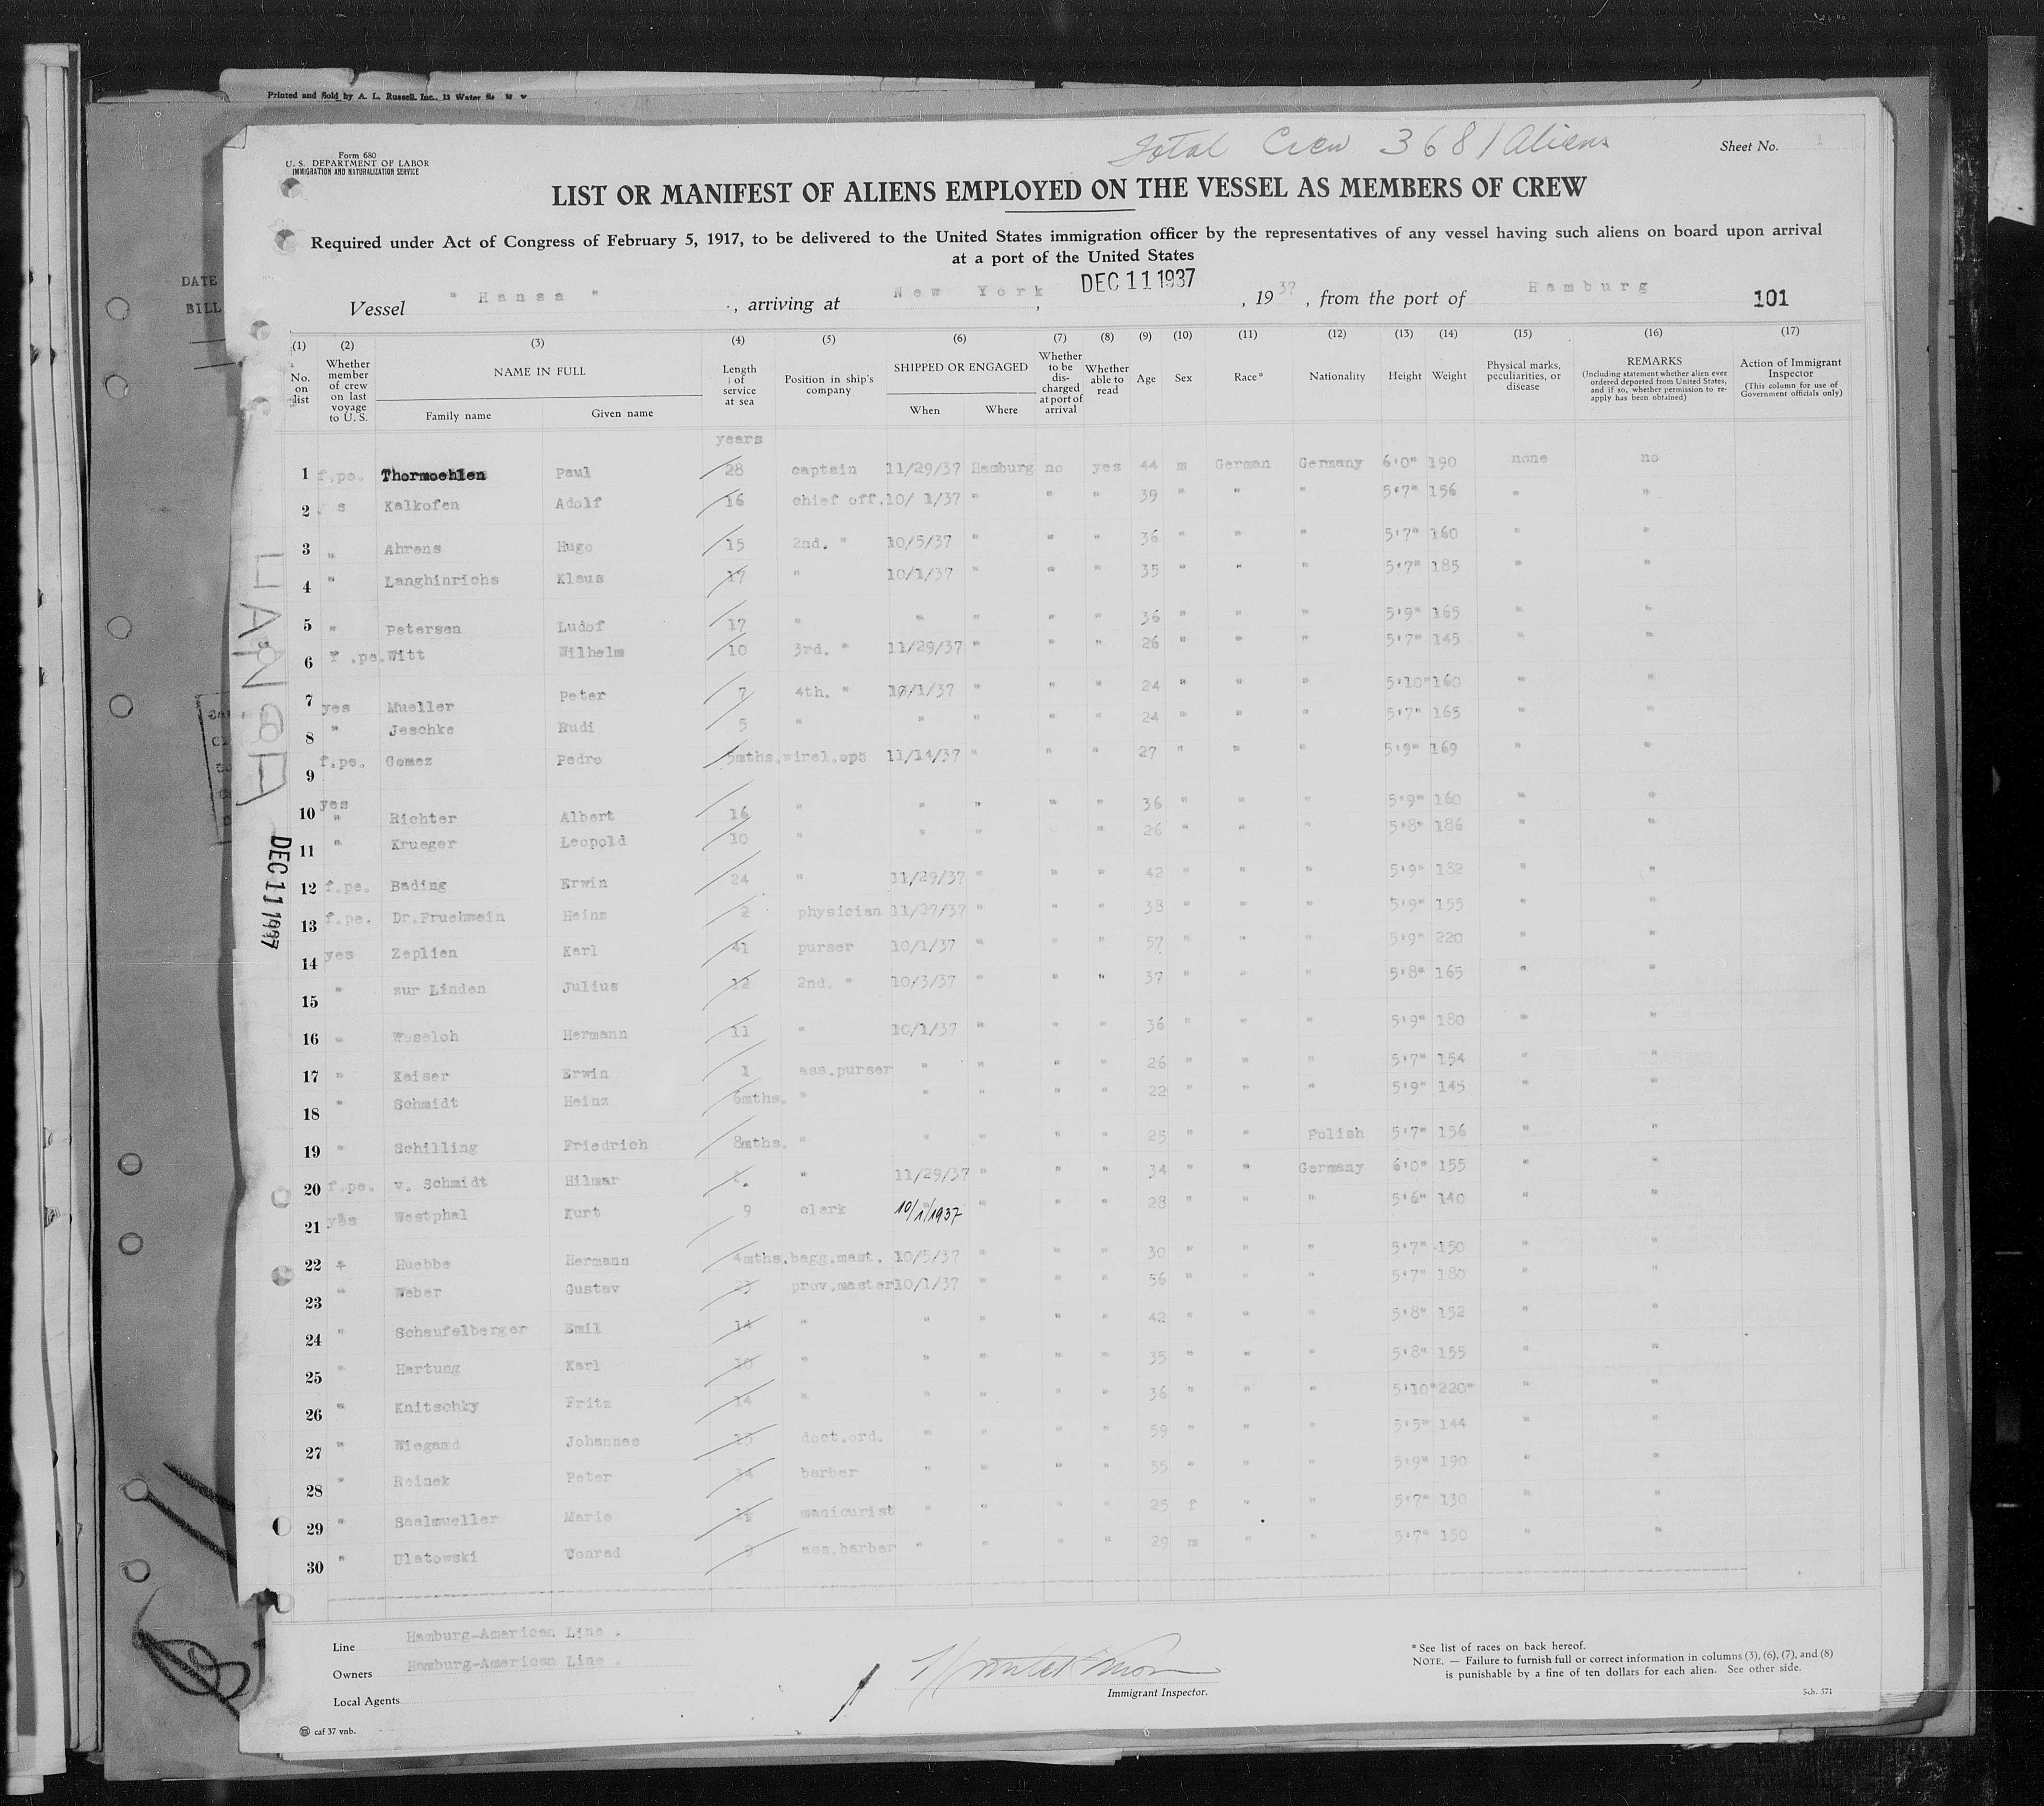 Printed and Sold by A. L. Russell, Inc., 13 Water
Total Crew 368 / Aliens
Form 680
U. S. DEPARTMENT OF LABOR
IMMIGRATION AND NATURALIZATION SERVICE
Sheet No. 1
LIST OR MANIFEST OF ALIENS EMPLOYED ON THE VESSEL AS MEMBERS OF CREW
Required under Act of Congress of February 5, 1917, to be delivered to the United States immigration officer by the representatives of any vessel having such aliens on board upon arrival
at a port of the United States
DATE
BILL
Vessel " Hansa " , arriving at New York , DEC 11 1937 , 1937 , from the port of Hamburg 101
(1) (2) (3) (4) (5) (6) (7) (8) (9) (10) (11) (12) (13) (14) (15) (16) (17)
No. on list
Whether member of crew on last voyage to U. S.
NAME IN FULL
Family name Given name
Length of service at sea
Position in ship's company
SHIPPED OR ENGAGED
When Where
Whether to be discharged at port of arrival
Whether able to read
Age Sex Race* Nationality Height Weight
Physical marks, peculiarities, or disease
REMARKS
(Including statement whether alien ever ordered deported from United States, and if so, whether permission to reapply has been obtained)
Action of Immigrant Inspector
(This column for use of Government officials only)
years
1 f.pe. Thormoehlen Paul 28 captain 11/29/37 Hamburg no yes 44 m German Germany 6'0" 190 none no
2 s Kalkofen Adolf 16 chief off. 10/ 1/37 " " " 39 " " " 5'7" 156 " "
3 " Ahrens Hugo 15 2nd. " 10/5/37 " " " 36 " " " 5'7" 160 " "
4 " Langhinrichs Klaus 17 " 10/1/37 " " " 35 " " " 5'7" 185 " "
5 " Petersen Ludof 17 " " " " " 36 " " " 5'9" 165 " "
6 f.pe. Witt Wilhelm 10 3rd. " 11/29/37 " " " 26 " " " 5'7" 145 " "
7 yes Mueller Peter 7 4th. " 10/1/37 " " " 24 " " " 5'10" 160 " "
8 " Jeschke Rudi 5 " " " " " 24 " " " 5'7" 165 " "
9 f.pe. Gomez Pedro 5mths. wirel.ope 11/14/37 " " " 27 " " " 5'9" 169 " "
10 yes " Richter Albert 16 " " " " " 36 " " " 5'9" 160 " "
11 " Krueger Leopold 10 " " " " 26 " " " 5'8" 186 " "
12 f.pe. Bading Erwin 24 " 11/29/37 " " " 42 " " " 5'9" 182 " "
13 f.pe. Dr.Fruehwein Heinz 2 physician 11/27/37 " " " 38 " " " 5'9" 155 " "
14 yes Zeplien Karl 41 purser 10/1/37 " " " 57 " " " 5'9" 220 " "
15 " zur Linden Julius 12 2nd. " 10/3/37 " " " 37 " " " 5'8" 165 " "
16 " Weseloh Hermann 11 " 10/1/37 " " " 36 " " " 5'9" 180 " "
17 " Kaiser Erwin 1 ass.purser " " " " 26 " " " 5'7" 154 " "
18 " Schmidt Heinz 6mths. " " " " " 22 " " " 5'9" 145 " "
19 " Schilling Friedrich 8mths. " " " " " 25 " " Polish 5'7" 156 " "
20 f.pe. v. Schmidt Hilmar " 11/29/37 " " " 34 " " Germany 6'0" 155 " "
21 yes Westphal Kurt 9 clerk 10/1/1937 " " " 28 " " " 5'6" 140 " "
22 " Huebbe Hermann 4mths. bagg.mast. 10/5/37 " " " 30 " " " 5'7" 150 " "
23 " Weber Gustav 23 prov.master 10/1/37 " " " 56 " " " 5'7" 180 " "
24 " Schaufelberger Emil 14 " " " " " 42 " " " 5'8" 152 " "
25 " Hartung Karl " " " " " 35 " " " 5'8" 155 " "
26 " Knitschky Fritz 14 " " " " " 36 " " " 5'10" 220" " "
27 " Wiegand Johannes 15 doct.ord. " " " " 59 " " " 5'5" 144 " "
28 " Reinek Peter 34 barber " " " " 55 " " " 5'9" 190 " "
29 " Saalmueller Marie manicurist " " " " 25 f " " 5'7" 130 " "
30 " Ulatowski Konrad 9 ass.barber " " " " 29 m " " 5'7" 150 " "
HANSA
DEC 11 1937
Line Hamburg-American Line .
Owners Hamburg-American Line .
Local Agents
Immigrant Inspector.
* See list of races on back hereof.
NOTE. — Failure to furnish full or correct information in columns (3), (6), (7), and (8)
is punishable by a fine of ten dollars for each alien. See other side.
Sch. 571
caf 37 vnb.